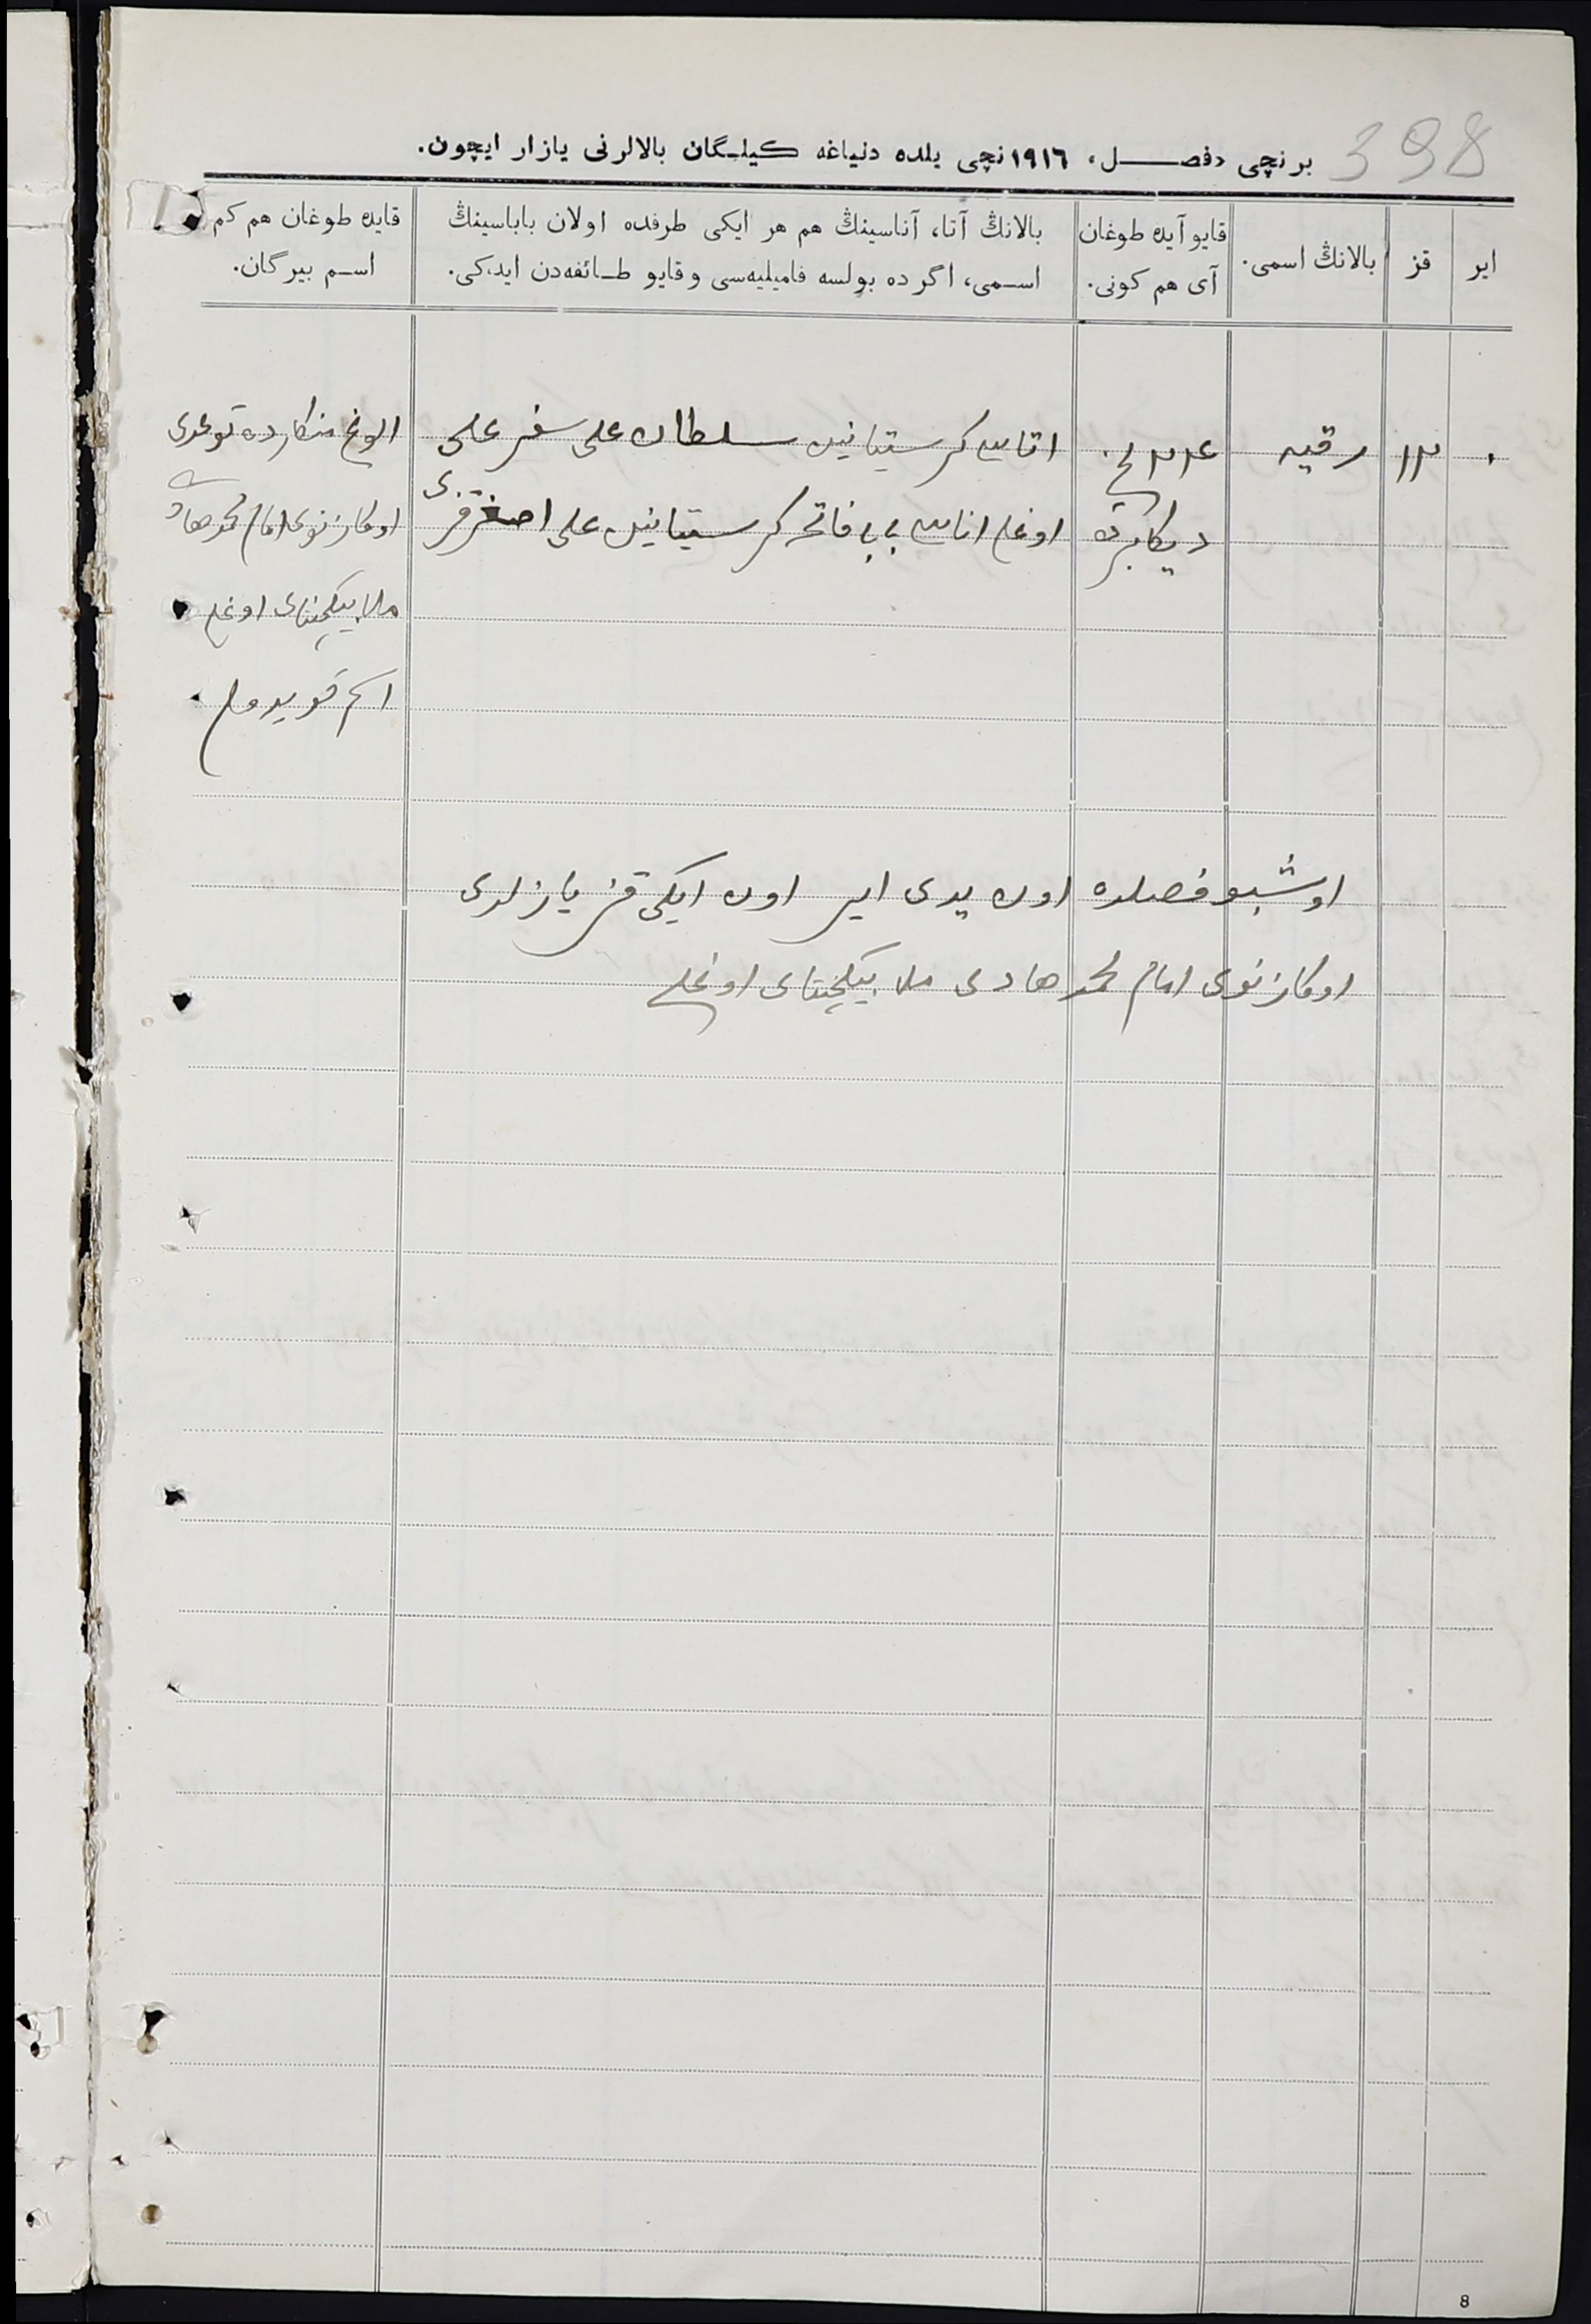 398
برنچی «فصل» ١٩١٦نچی یلده دنیاغه کیلگان بالالرنی یازار ایچون.
ایر
قز
بالانڭ اسمی.
قایو آیده طوغان
آی هم کونی.
بالانڭ آتا، آناسینڭ هم هر ایکی طرفده اولان باباسینڭ
اسمی، اگرده بولسه فامیلیه‌سی و قایو طائفه‌دن ایدکی.
قایده طوغان هم کم
اسم بیرگان.
١٢
رقیه
دیکابرده
اتاسی کرستیانین سلطان علی سفر علی
اوغلی اناسی بی بی فاتح کرستیانین علی اصغر قزی
الوغ منکارده توغدی
اوکازنوی امام محمد هادی
ملا بیکچنتای اوغلی
اسم قویدم
اوشبو فصلده اون یدی ایر اون ایکی قز یازلدی
اوکازنوی امام محمد هادی ملا بیکچنتای اوغلی
8